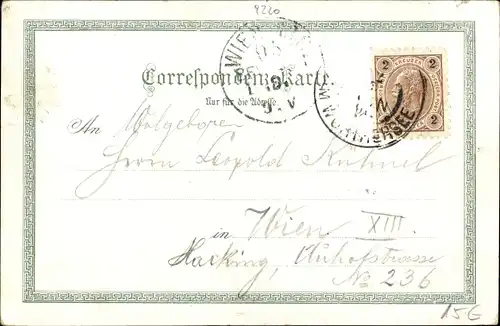 9220
WIEN
Correspondenz-Karte.
Nur für die Adresse.
2 KREUZER 2
2 2
WÖRTHERSEE
An Wolgeboren
Herrn Leopold Kühnel
in Wien XIII.
Hacking, Auhofstrasse
No 236
15G